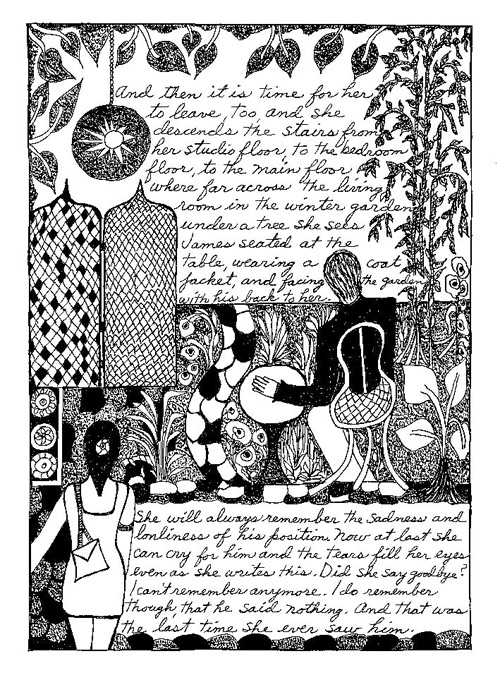 And then it is time for her
to leave, too, and she
descends the stairs from
her studio floor, to the bedroom
floor, to the main floor
where far across the living
room in the winter garden
under a tree she sees
James seated at the
table, wearing a coat
jacket, and facing the garden
with his back to her.
She will always remember the sadness and
lonliness of his position. Now at last she
can cry for him and the tears fill her eyes
even as she writes this. Did she say goodbye?
I can't remember anymore. I do remember
though, that he said nothing. And that was
the last time she ever saw him.